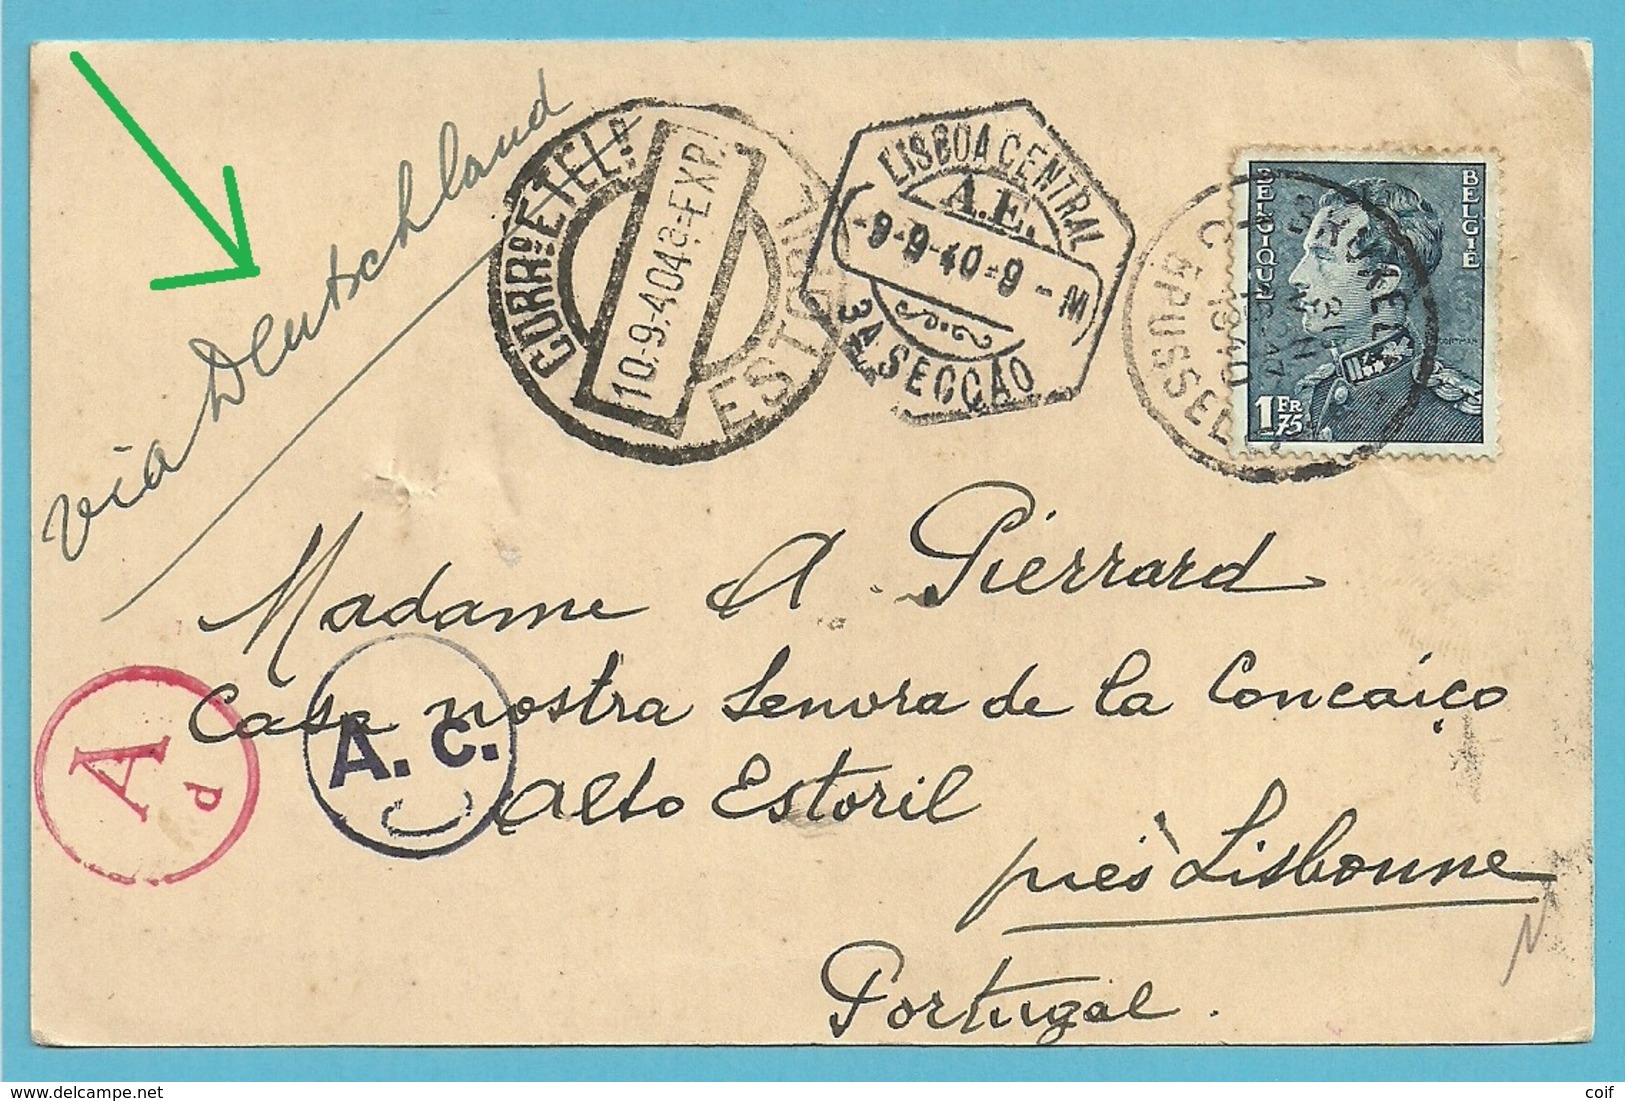 via Deutschland
CORRº E TELº
10-9-40 4ª-EXP.
ESTORIL
LISBOA CENTRAL
A.E.
-9-9-40-9-M
3A SECCAO
BRUXELLES
1940
BRUSSEL
BELGIQUE
BELGIË
1 FR 75
Madame A Pierrard
Casa nostra Senora de la Concaiço
Alto Estoril
près Lisbonne
Portugal.
A
d
A. c.
N
coif